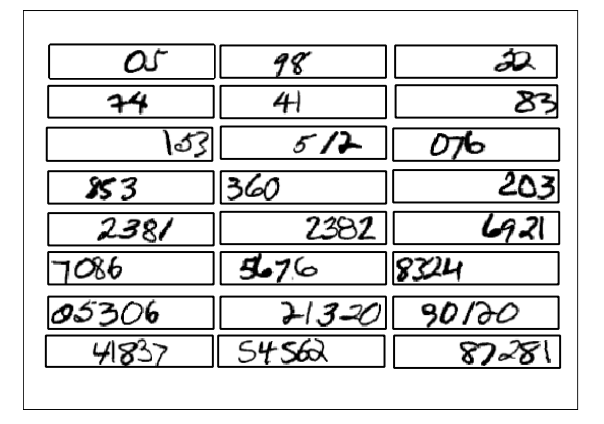 05 98 22
74 41 83
153 512 076
853 360 203
2381 2382 6921
7086 5676 8324
05306 21320 90120
41837 54562 87281